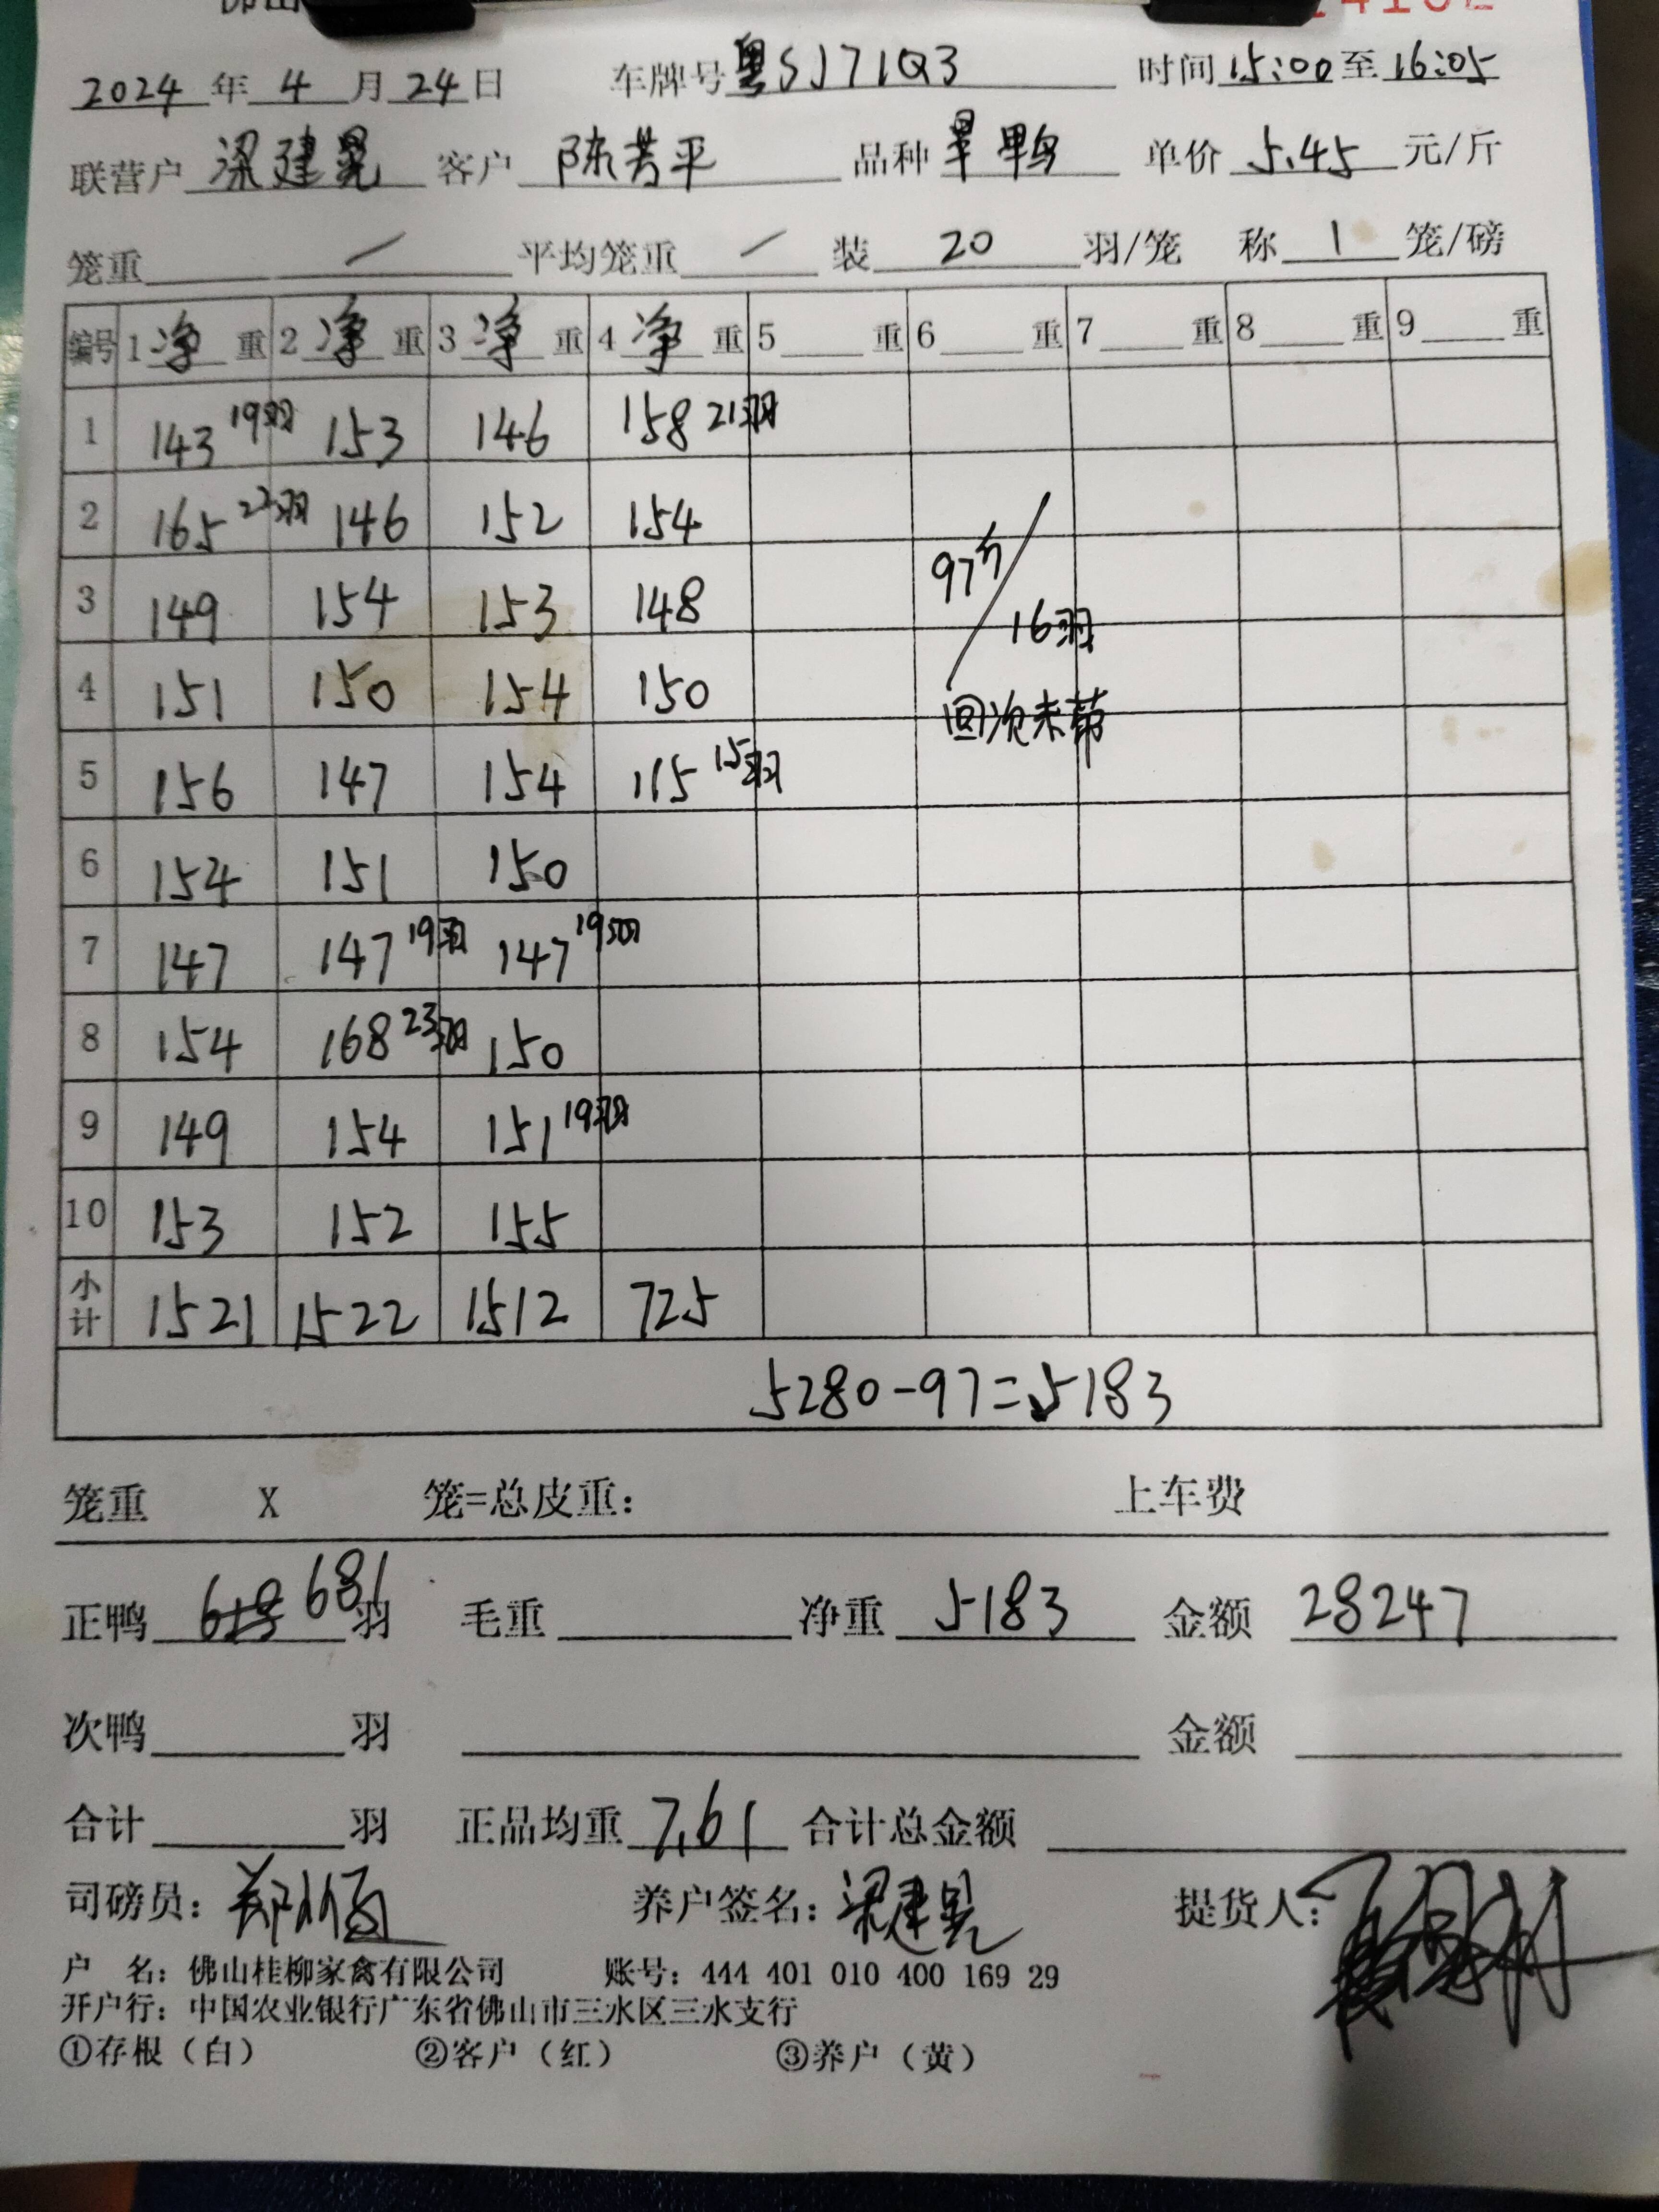 2024 年 4 月 24 日 车牌号 粤SJ71Q3 时间 15:00 至 16:05
联营户 梁建晃 客户 陈芳平 品种 旱鸭 单价 5.45 元/斤
笼重 / 平均笼重 / 装 20 羽/笼 称 1 笼/磅
编号 1 净 重 2 净 重 3 净 重 4 净 重 5 重 6 重 7 重 8 重 9 重
1 143 19羽 153 146 158 21羽
2 165 22羽 146 152 154
3 149 154 153 148 97斤/16羽
4 151 150 154 150 回次未带
5 156 147 154 115 15羽
6 154 151 150
7 147 147 19羽 147 19羽
8 154 168 23羽 150
9 149 154 151 19羽
10 153 152 155
小计 1521 1522 1512 725
5280-97=5183
笼重 X 笼=总皮重： 上车费
正鸭 681 羽 毛重 净重 5183 金额 28247
次鸭 羽 金额
合计 羽 正品均重 7.61 合计总金额
司磅员： 养户签名：梁建晃 提货人：
户 名：佛山桂柳家禽有限公司 账号：444 401 010 400 169 29
开户行：中国农业银行广东省佛山市三水区三水支行
①存根（白） ②客户（红） ③养户（黄）